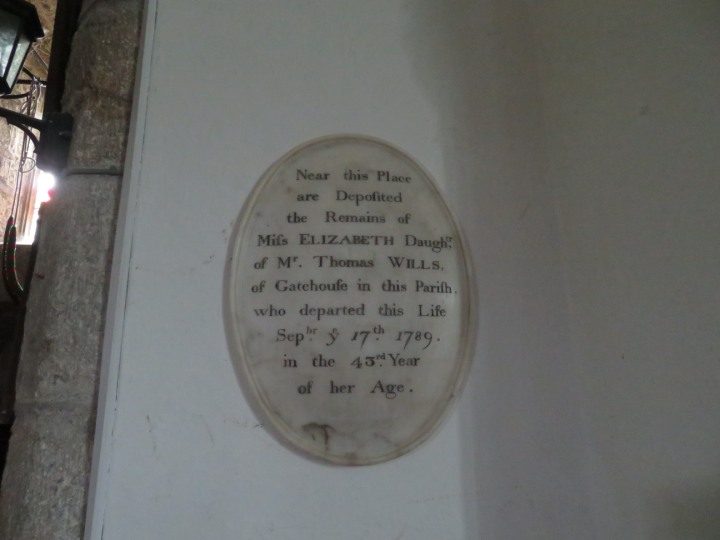 Near this Place
are Depoſited
the Remains of
Miſs ELIZABETH Daughᵗʳ.
of Mʳ. Thomas WILLS,
of Gatehouſe in this Pariſh.
who departed this Life
Sepᵇʳ. yᵉ 17ᵗʰ. 1789.
in the 43ʳᵈ. Year
of her Age.